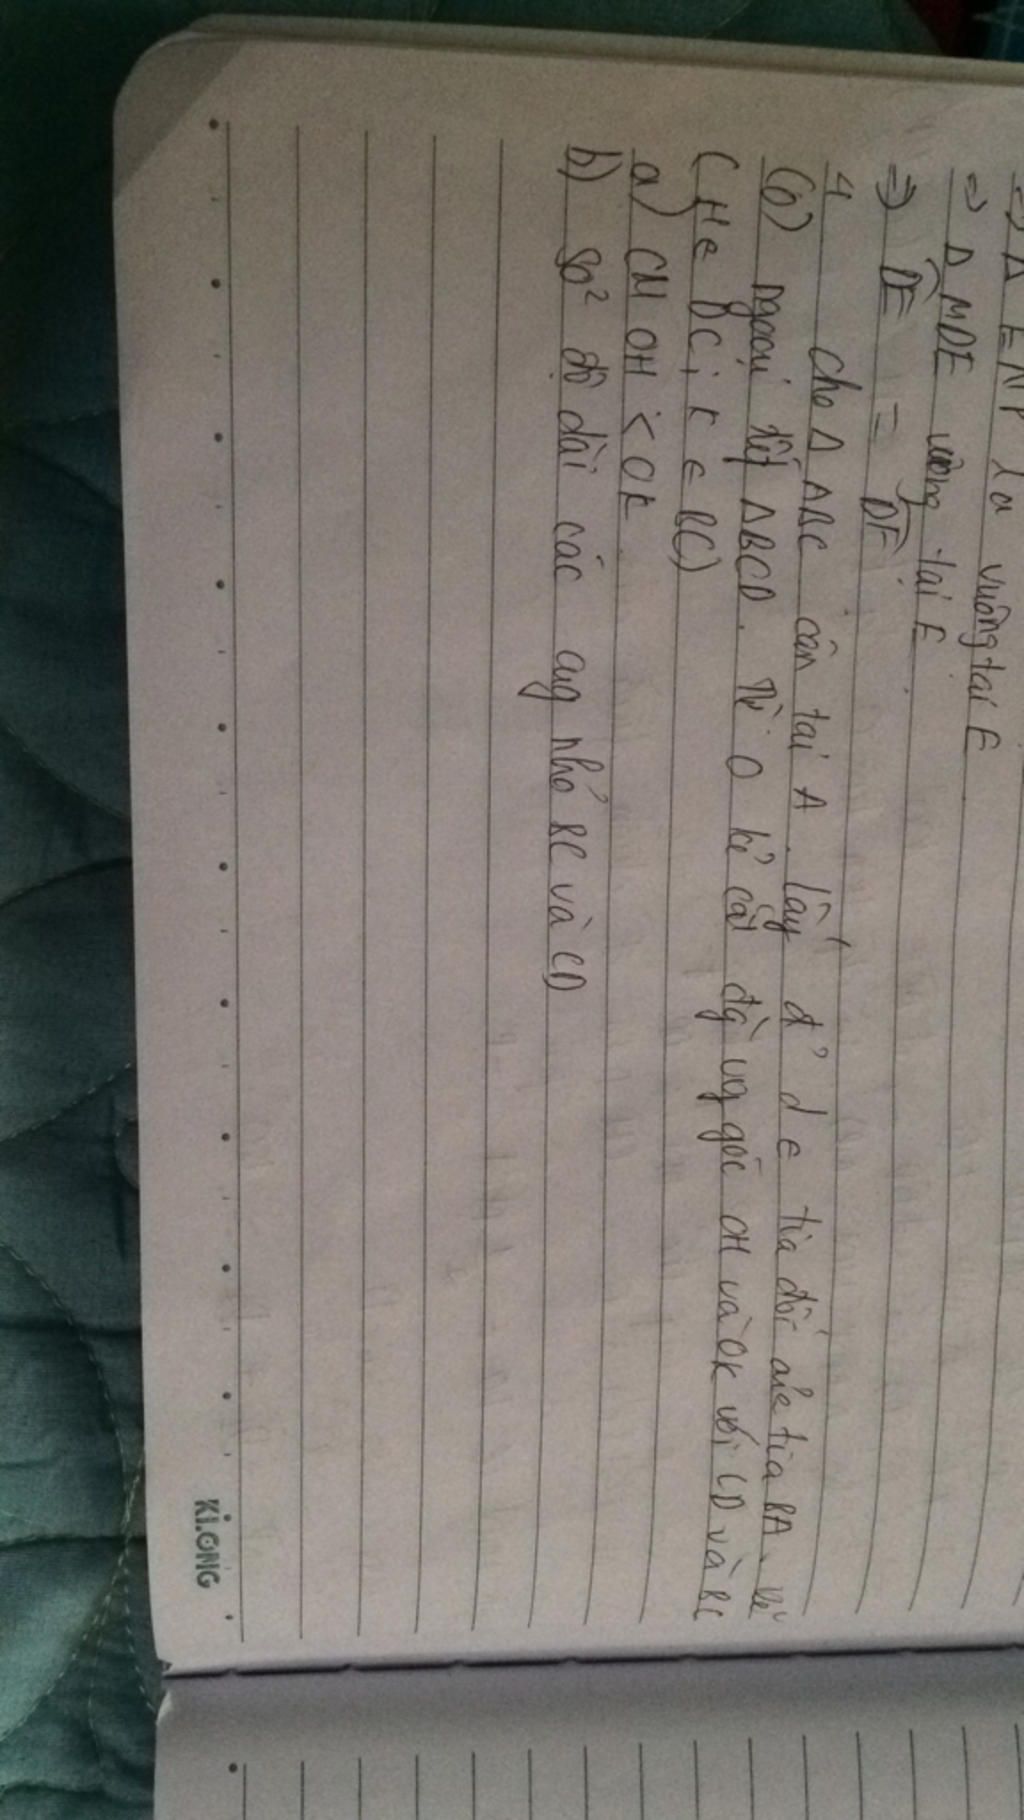 => Δ ENP là vuông tại E
=> Δ MDE vuông tại E
=> DE = DF
4 Cho Δ ABC cân tại A. lấy đ' d ∈ tia đối của tia BA. kẻ
(O) ngoại tiếp ΔBCD. Từ O kẻ các đg vg góc OH và OK với CD và BC
(H ∈ DC; K ∈ BC)
a) CM OH < OK
b) So² độ dài các cug nhỏ BC và CD
KLONG